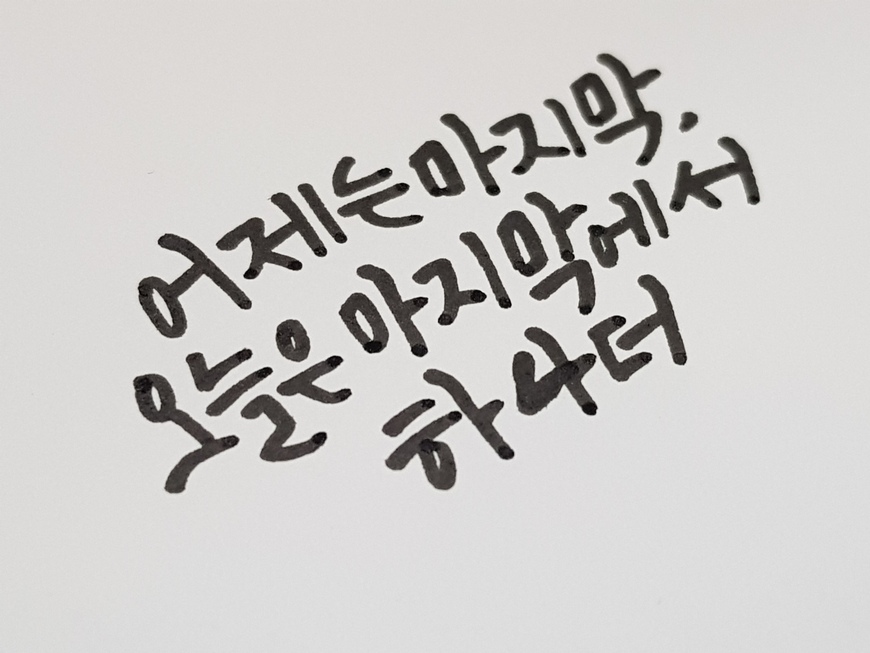 어제는 마지막.
오늘은 마지막에서
하나 더